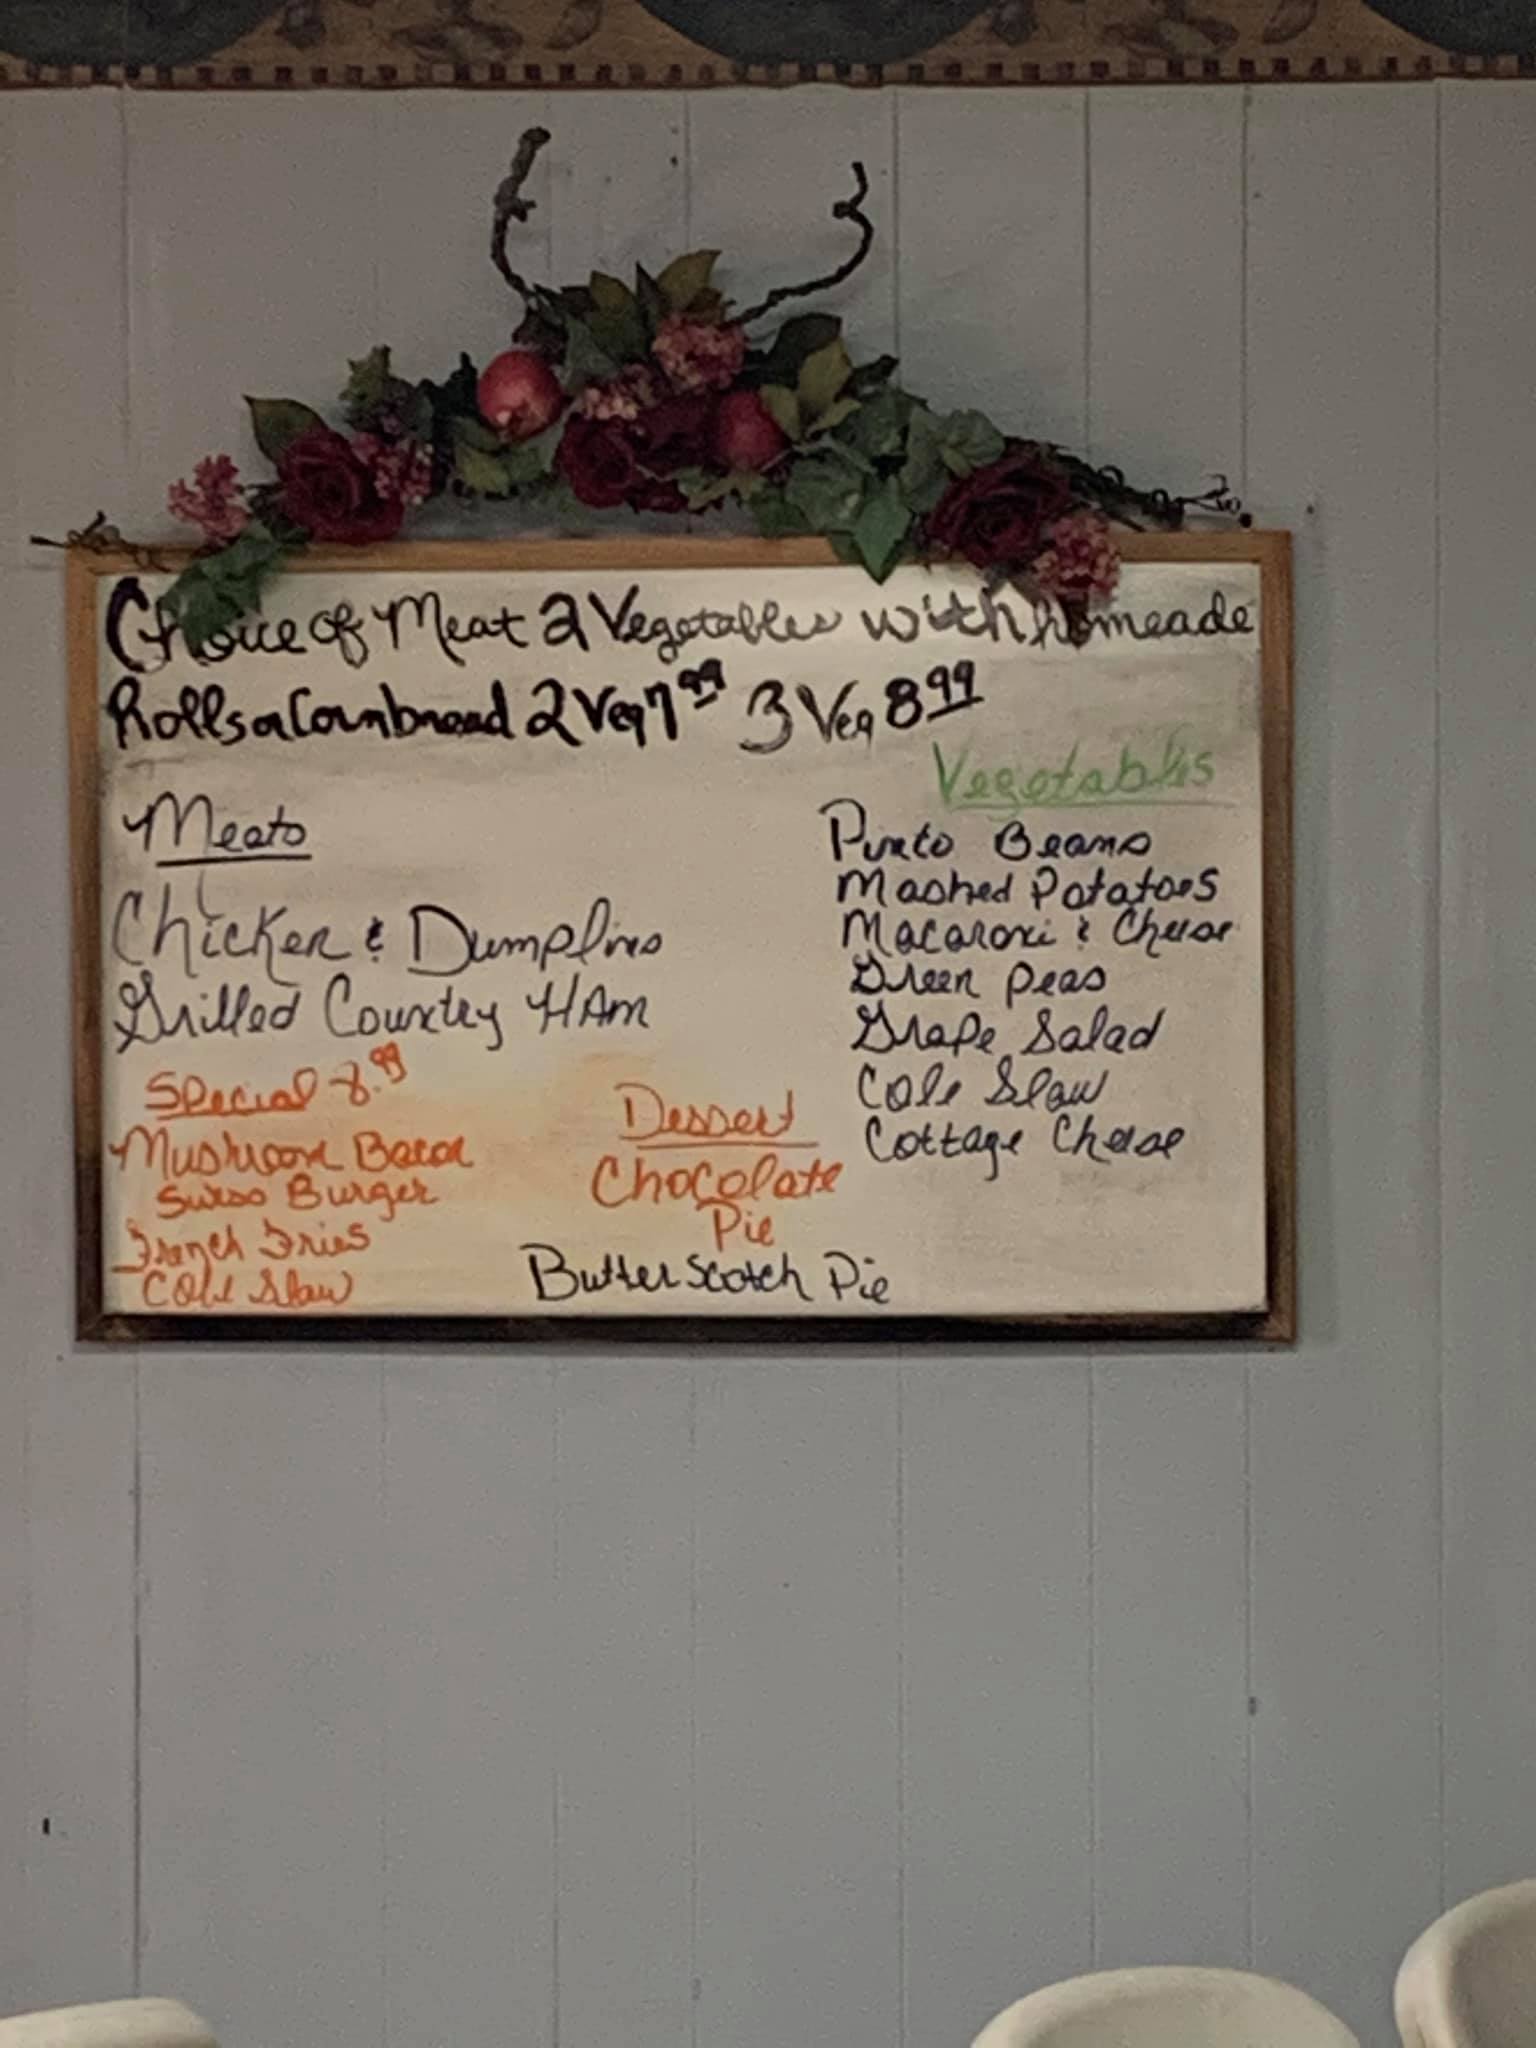 Choice of Meat 2 Vegetables with homeade
Rolls or Cornbread 2 Veg 7.99 3 Veg 8.99
Meats
Chicken & Dumplins
Grilled Country HAm
Special 8.99
Mushroom Bacon
Swiss Burger
French Fries
Cole Slaw
Dessert
Chocolate
Pie
Butter Scotch Pie
Vegetables
Pinto Beans
Mashed Potatoes
Macaroni & Cheese
Green Peas
Grape Salad
Cole Slaw
Cottage Cheese